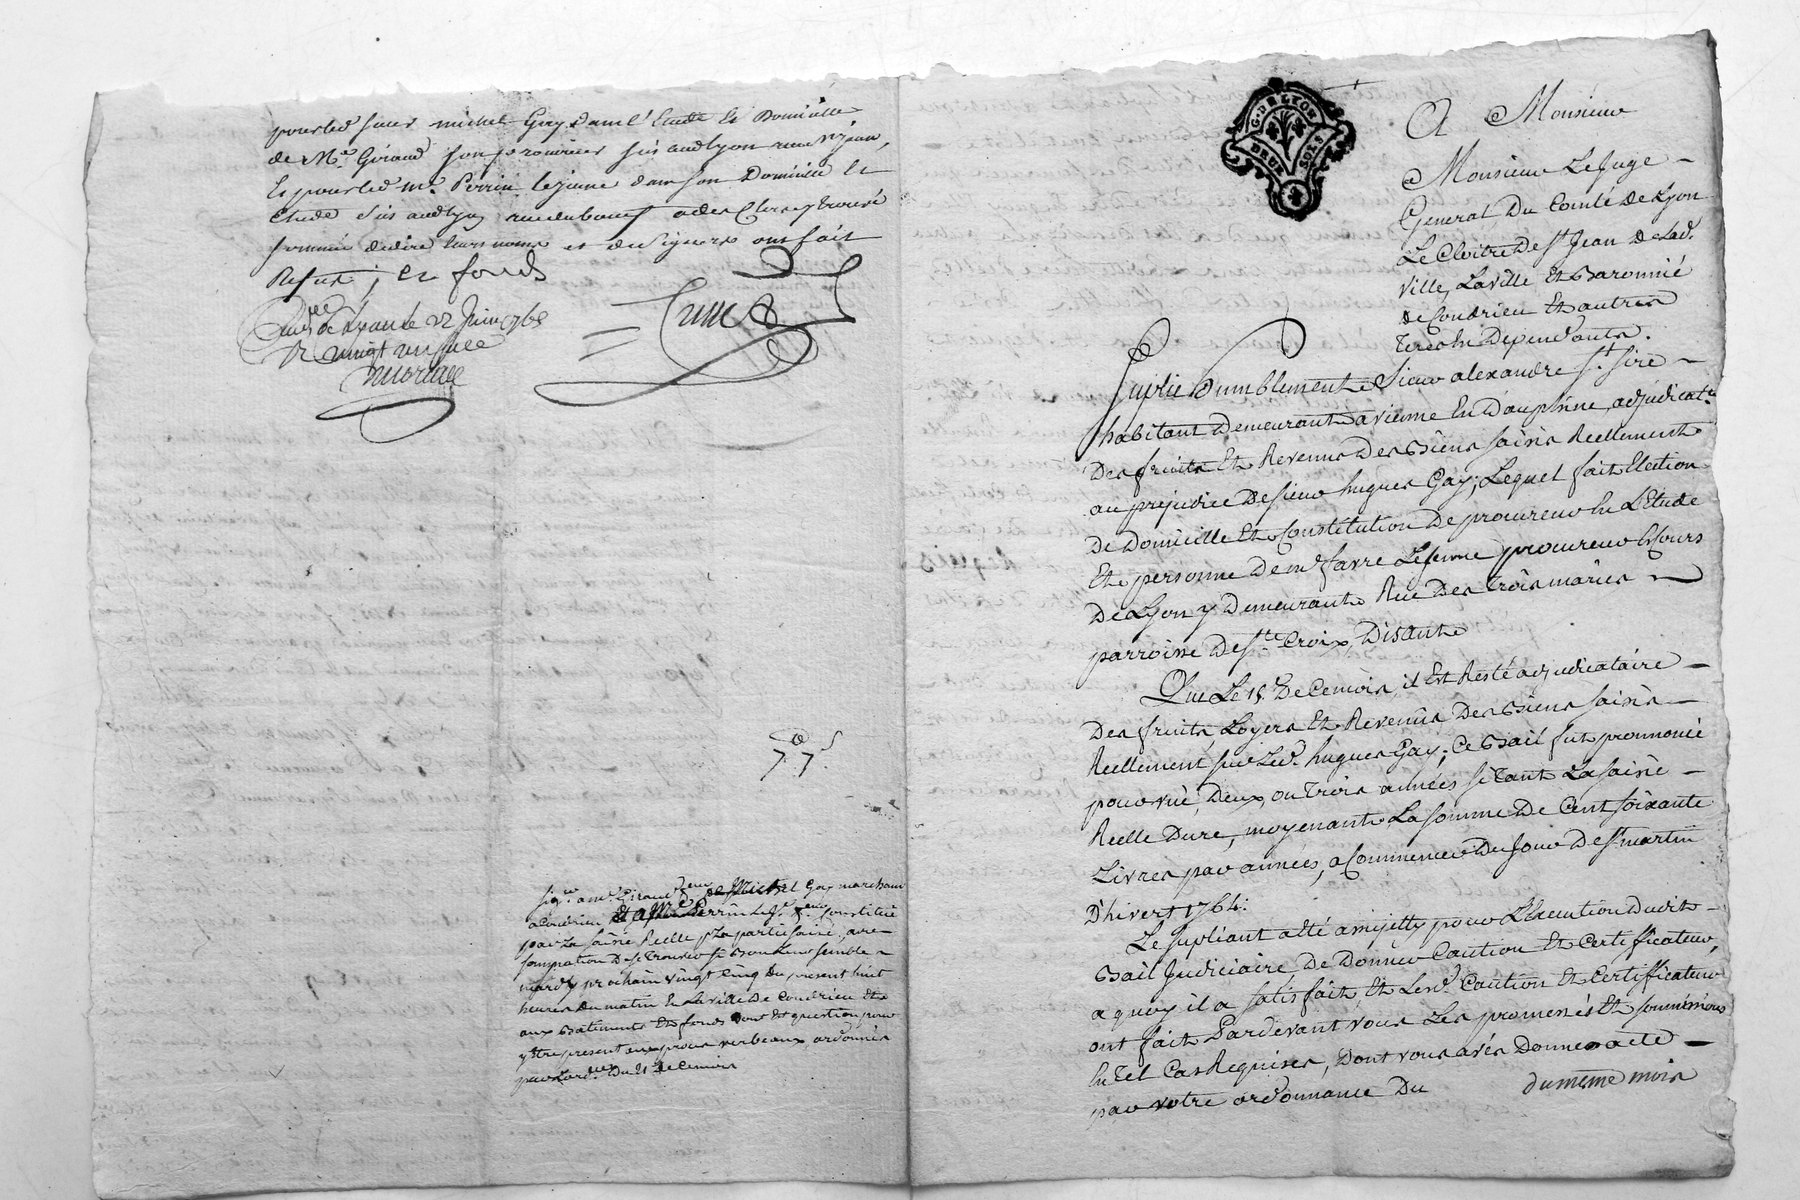 pour led. sieur michel Gay dans l'Etude et Domicille
de Me. Giraud son procureur sis aud Lyon rue St. jean,
Et pour led. Me. Perrin lejeune dans son Domicille Et
Etude sis aud Lyon rue du boeuf a des Clercs y trouvés
sommés de dire leurs noms et de signer ont fait
Refus, et
de Lyon le 22 Juin 1765
G. DE LYON
DEUX SOLS
A Monsieur
Monsieur Le Juge
General Du Comté de Lyon
Le Cloitre De St. Jean De Lad.
ville, La ville Et Baronnie
de Condrieu Et autres
Terres En Dependants.
Suplie Humblement Sieur alexandre St. Sire
habitant Demeurant a vienne En Dauphine, adjudicat.re
Des fruits Et Revenus Des Biens saisis Reellement
au prejudice De sieur hugues Gay; Lequel fait Election
de Domicille Et Constitution De procureur En L'Etude
Et personne de Me. favre Lejeune procureur Es Cours
De Lyon y Demeurant Rue Des Trois maries
parroisse De Ste. Croix, Disant
Que Le 15e. De Ce mois, il Est Resté adjudicataire
Des fruits, Loyers Et Revenus Des Biens saisis
Reellement sur Led. hugues Gay; Ce Bail fut prononcé
pour une, Deux, ou Trois années si Tant La saisie
Reelle Dure, moyenant La somme De Cent soixante
Livres par années, a Commencer Du Jour De St. martin
D'hiver 1764.
Le supliant a eté assujetty pour L'Execution Dudit
Bail Judiciaire, De Donner Caution Et Certifficateur,
a quoy il a satisfait, Et Lesd. Caution Et Certifficateur
ont fait Pardevant vous Les promesses Et soumissions
En Tel Cas Requises, Dont vous avés Donné acte
par votre ordonnance Du du meme mois
7. 7.
Gay marchand
a Condrieu Et a Me Perrin Le Je. Constitué
par La saisie Reelle pr La partie saisie, avec
sommation De se Trouver si Bon Leur semble
mardy prochain vingt Cinq Du present huit
heures Du matin En La ville De Condrieu Et
aux Batiments Et fonds Dont Est question, pour
y Etre present aux procès verbeaux ordonnés
par L'ord.ce Du 21 De Ce mois